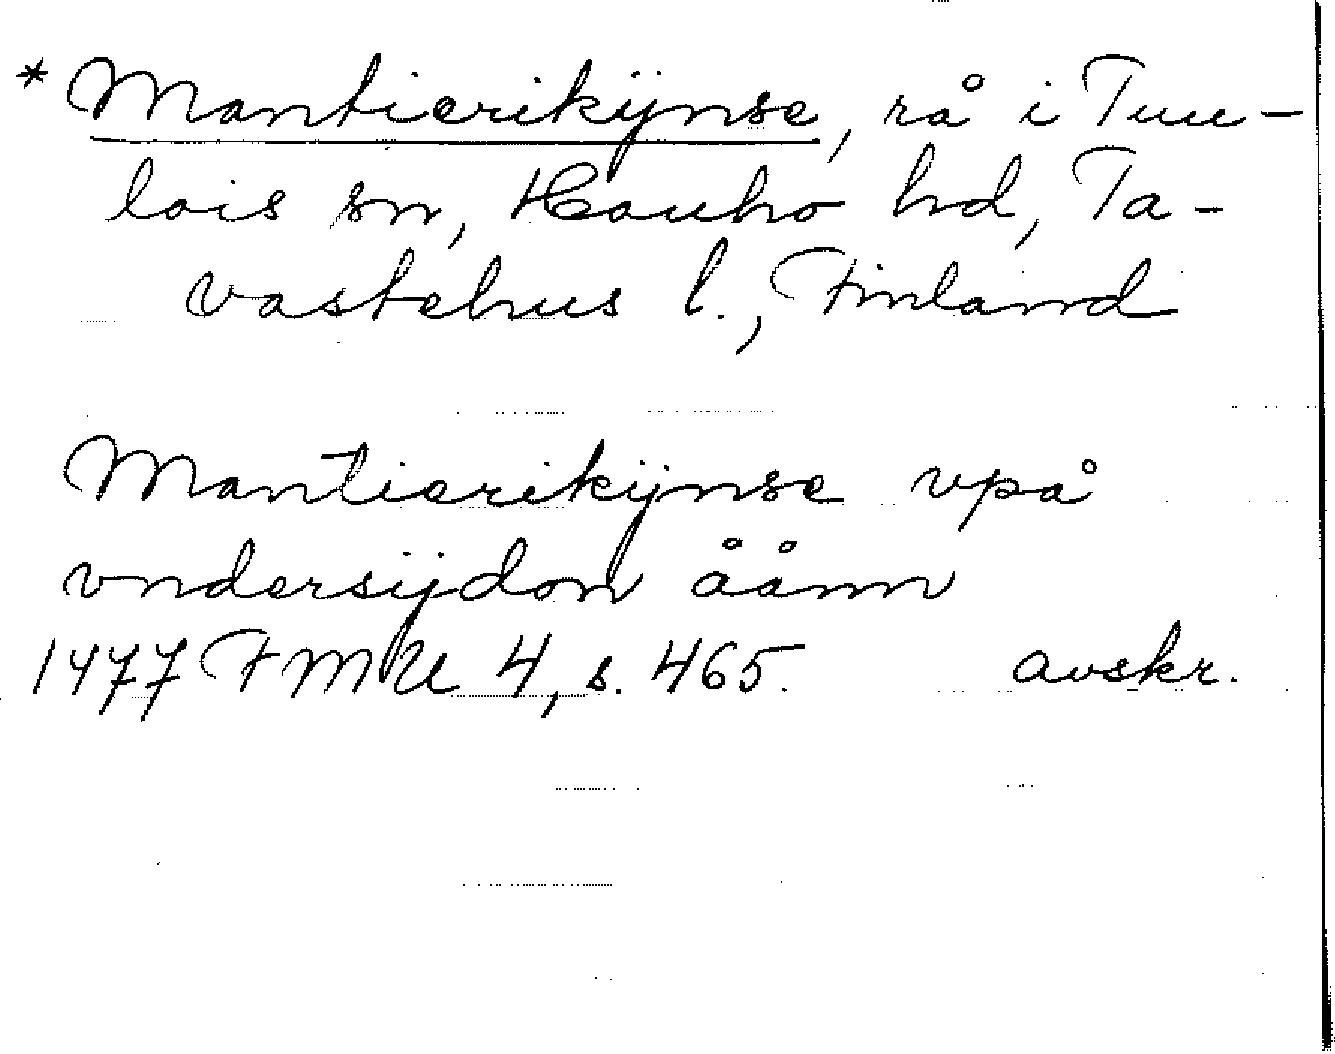 *Mantierikijnse, rå i Tuu-
lois sn, Hauho hd, Ta-
vastehus l., Finland
Mantierikijnse vpå
vndersijdon åånn
1477 FMU 4, s. 465. avskr.